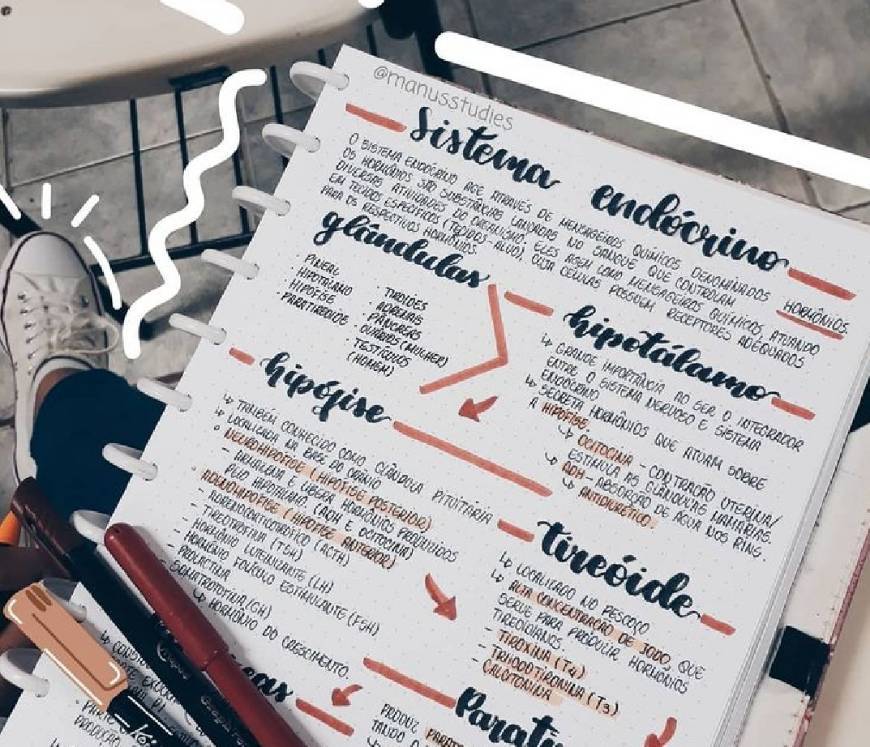 @manusstudies
Sistema endócrino
O SISTEMA ENDÓCRINO AGE ATRAVÉS DE MENSAGEIROS QUÍMICOS DENOMINADOS HORMÔNIOS.
OS HORMÔNIOS SÃO SUBSTÂNCIAS LANÇADAS NO SANGUE QUE CONTROLAM
DIVERSAS ATIVIDADES DO ORGANISMO. ELES AGEM COMO MENSAGEIROS QUÍMICOS, ATUANDO
EM TECIDOS ESPECÍFICOS (TECIDOS-ALVO), CUJA CÉLULAS POSSUEM RECEPTORES ADEQUADOS
PARA OS RESPECTIVOS HORMÔNIOS.
glândulas
· PINEAL
· HIPOTÁLAMO
· HIPÓFISE
· PARATIREOIDE
· TIREOIDES
· ADRENAIS
· PÂNCREAS
· OVÁRIOS (MULHER)
· TESTÍCULOS
(HOMEM)
hipotálamo
↳ GRANDE IMPORTÂNCIA AO SER O INTEGRADOR
ENTRE O SISTEMA NERVOSO E SISTEMA
ENDÓCRINO
↳ SECRETA HORMÔNIOS QUE ATUAM SOBRE
A HIPÓFISE
↳ OCITOCINA - CONTRAÇÃO UTERINA/
ESTIMULA AS GLÂNDULAS MAMÁRIAS.
↳ ADH - ABSORÇÃO DE ÁGUA NOS RINS.
↳ ANTIDIURÉTICO
hipófise
↳ TAMBÉM CONHECIDO COMO GLÂNDULA PITUITÁRIA
↳ LOCALIZADA NA BASE DO CRÂNIO
° NEUROHIPÓFISE (HIPÓFISE POSTERIOR)
- ARMAZENA E LIBERA HORMÔNIOS PRODUZIDOS
PELO HIPOTÁLAMO (ADH E OCITOCINA)
° ADENOHIPÓFISE (HIPÓFISE ANTERIOR)
- ADRENOCORTICOTRÓFICO (ACTH)
- TIREOTROFINA (TSH)
- HORMÔNIO LUTEINIZANTE (LH)
- HORMÔNIO FOLÍCULO ESTIMULANTE (FSH)
- PROLACTINA
- SOMATROTOFINA (GH)
↳ HORMÔNIO DO CRESCIMENTO.
tireóide
↳ LOCALIZADO NO PESCOÇO
↳ ALTA CONCENTRAÇÃO DE IODO, QUE
SERVE PARA PRODUZIR HORMÔNIOS
TIREOIDIANOS.
- TIROXINA (T4)
- TRIIODOTIRONINA (T3)
- CALCITONINA
Parati
PRODUZ PARATO
TANDO O
PRODUÇÃO